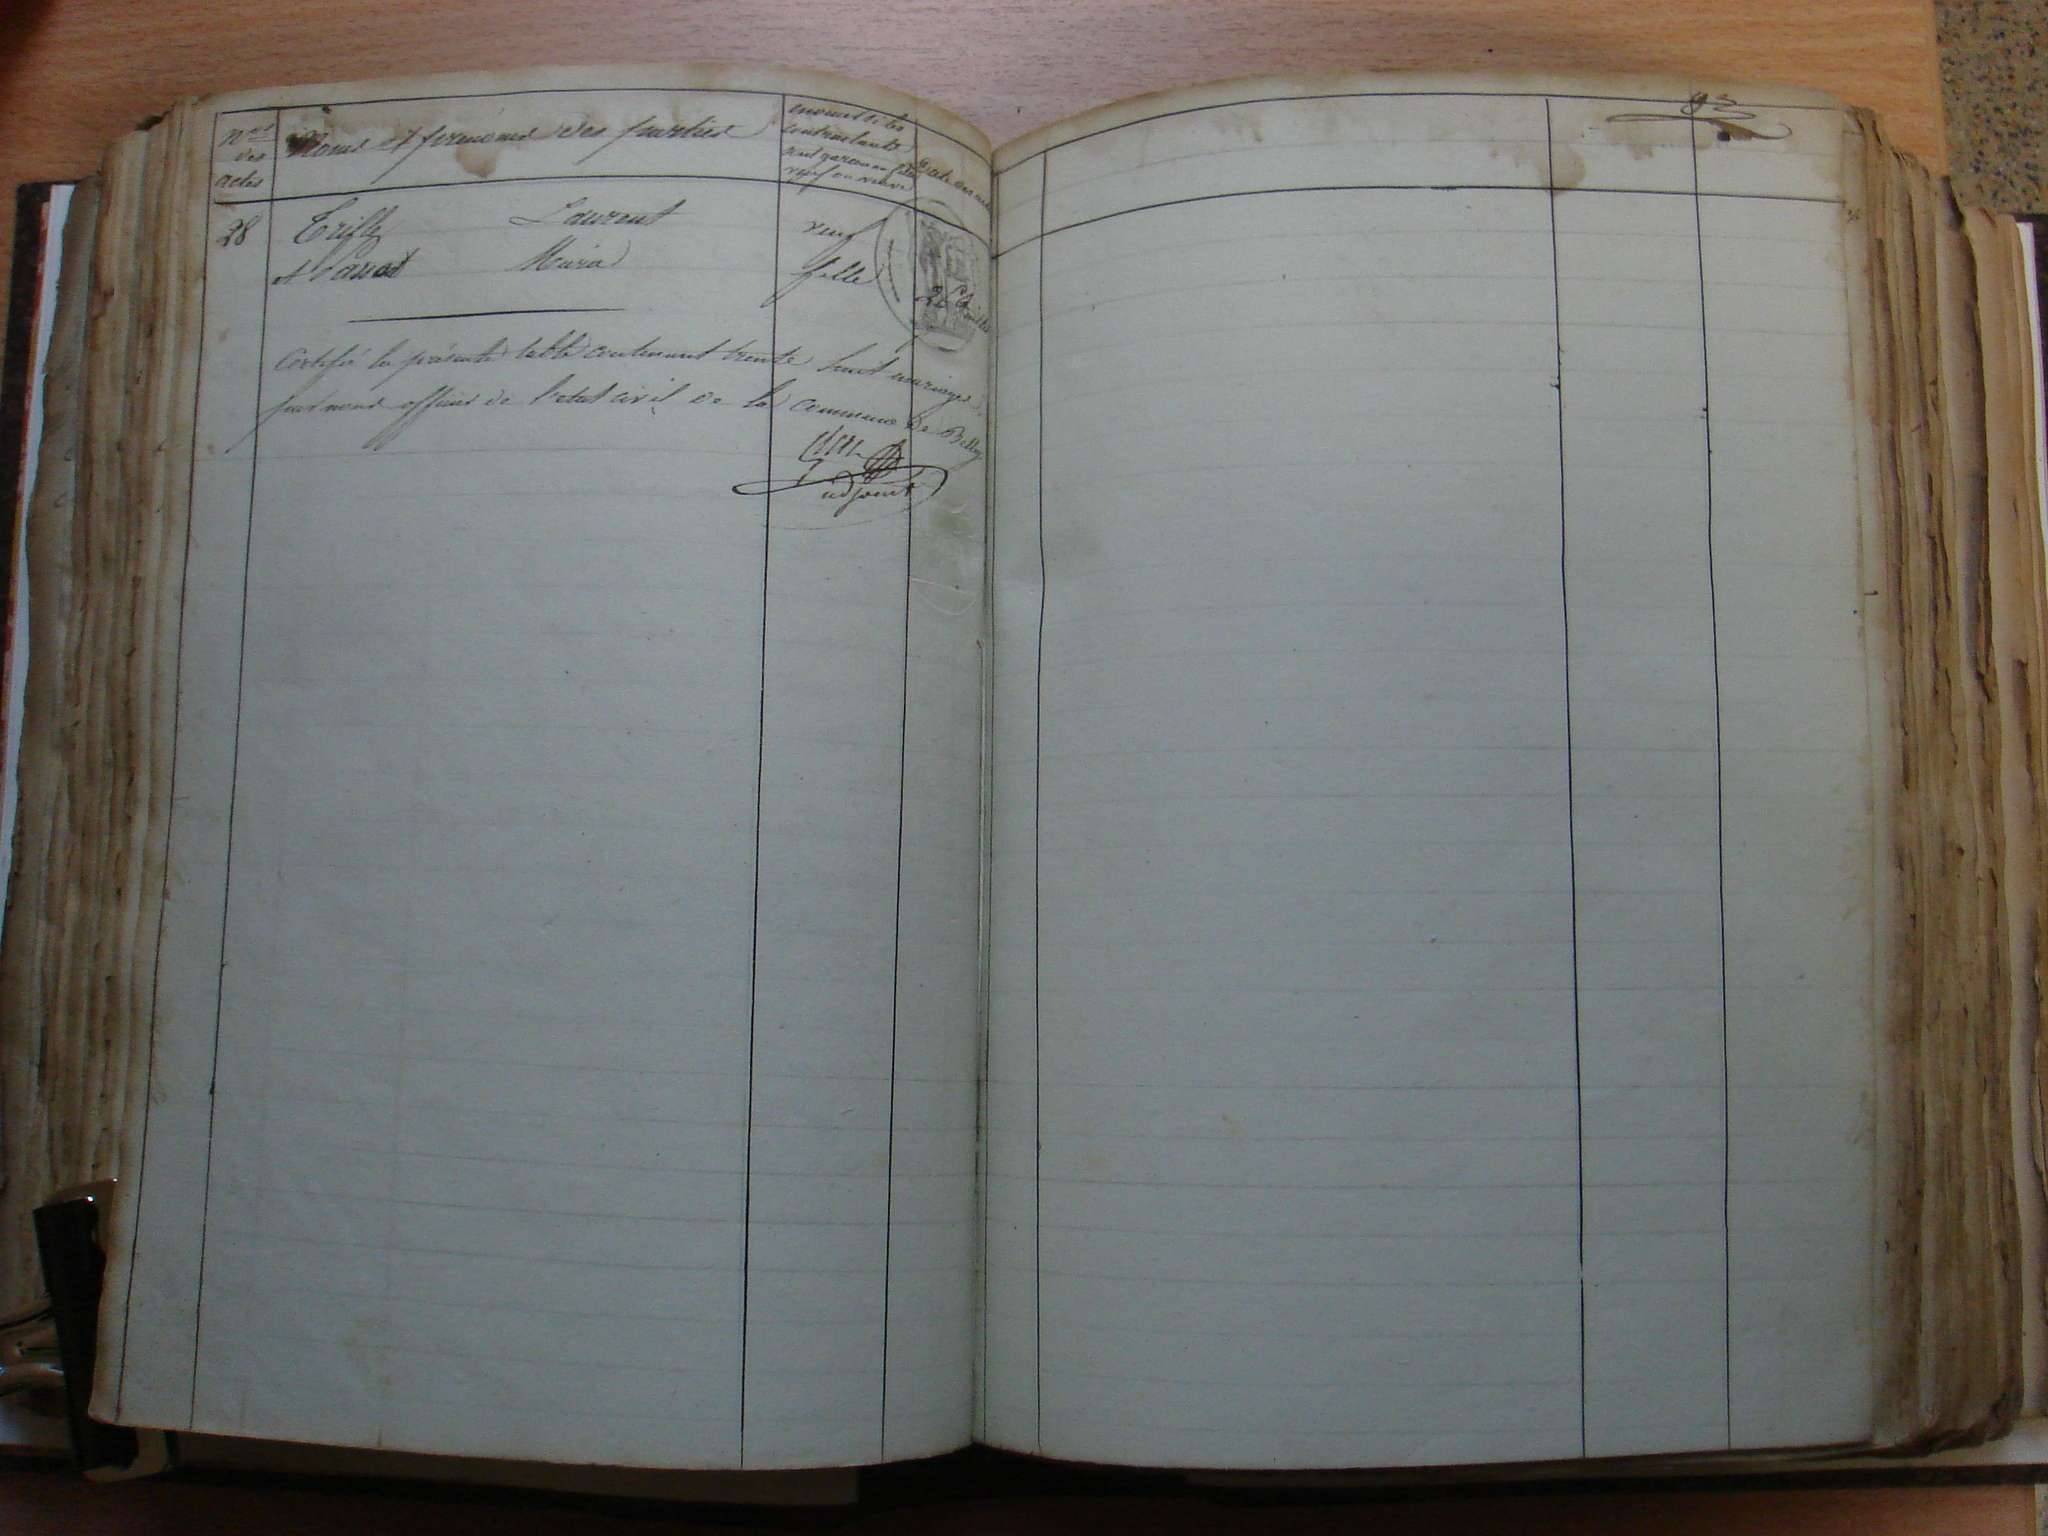 Nos
des
actes
Noms et prénoms des parties
énoncé si les
contractants
sont garçon ou fille
veuf ou veuve
Date des actes
93
28 Trilles Laurent veuf
et Marie fille 26 Juillet
Certifié la présente table contenant trente huit mariages
par nous officier de l'état civil de la commune de
adjoint